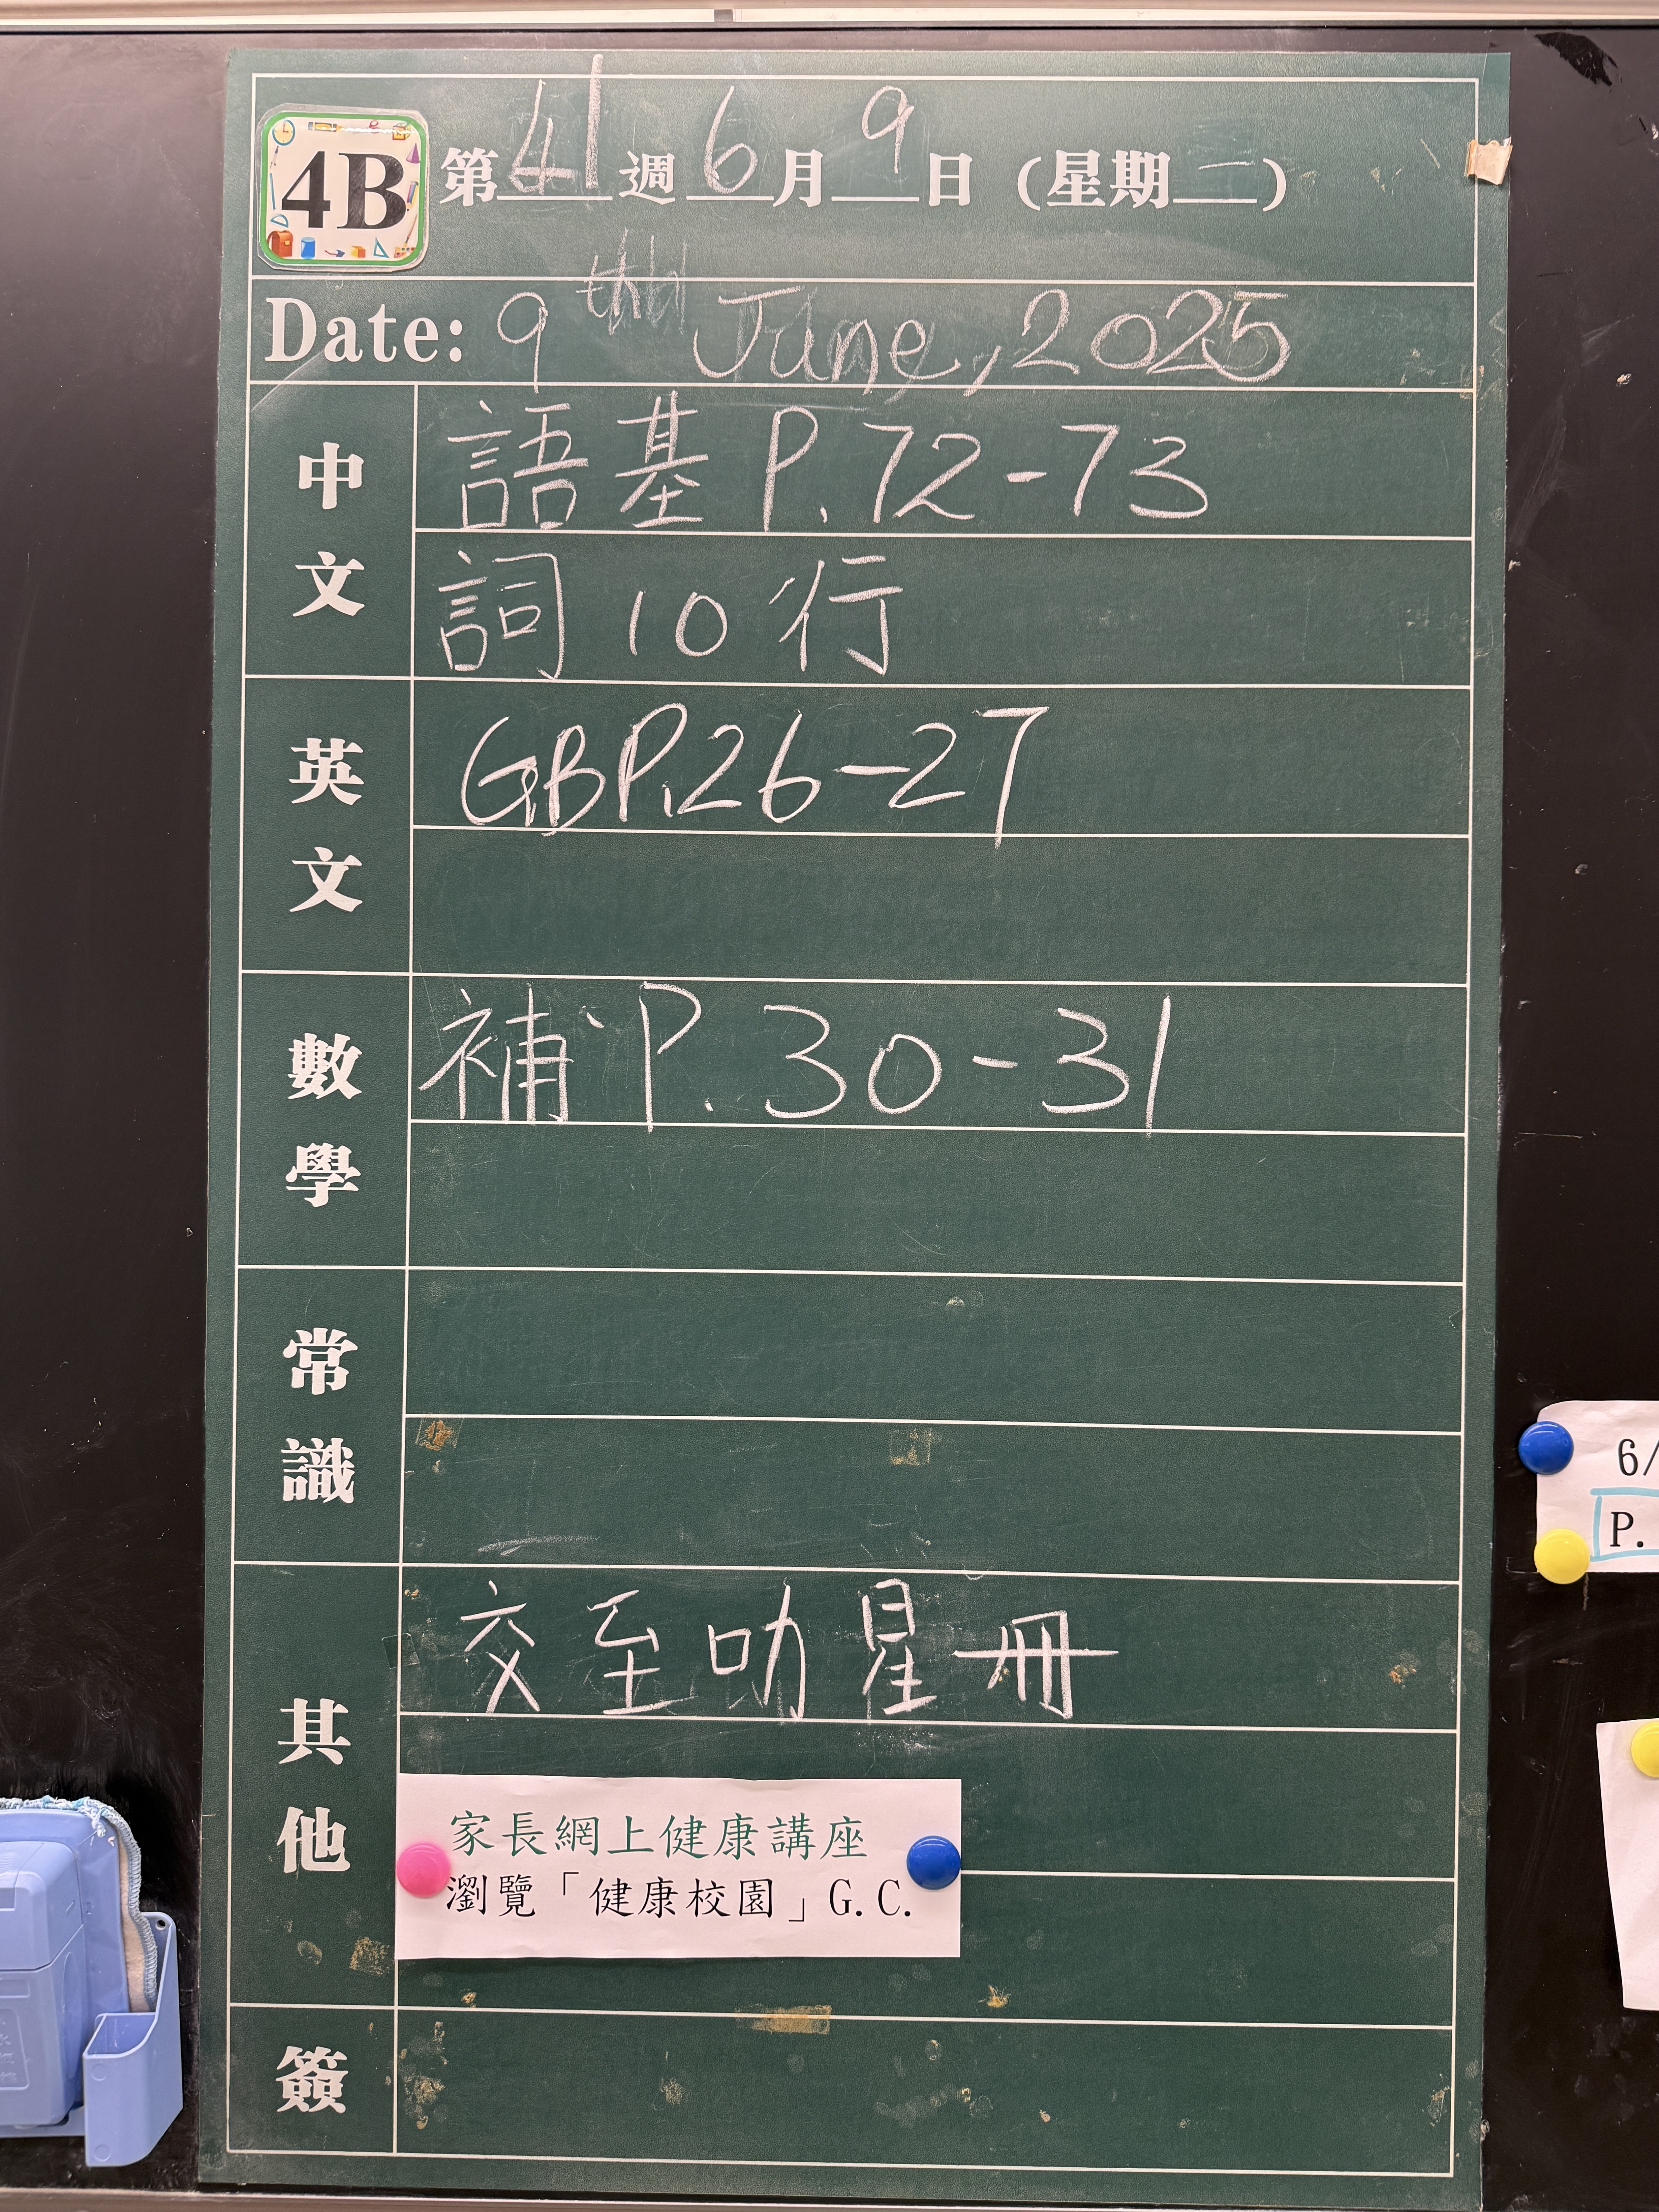 4B 第41週6月9日(星期一)
Date: 9th June, 2025
中文 語基 P.72-73
詞 10 行
英文 GB P.26-27
數學 補 P.30-31
常識
其他 交至叻星冊
家長網上健康講座
瀏覽「健康校園」G.C.
簽
6/
P.